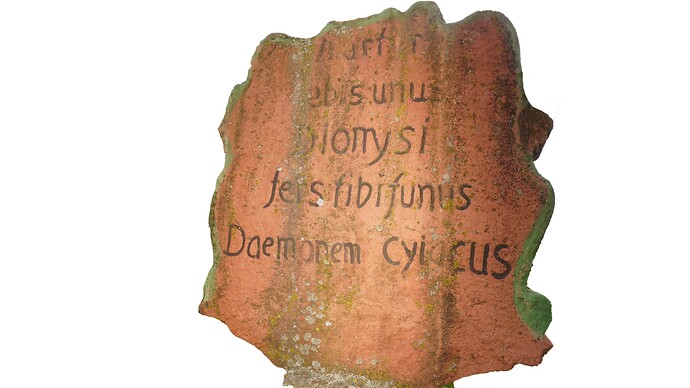 ebis unus
Dionysi
fers tibi funus
Daemonem Cyiacus